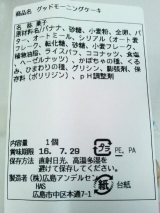 商品名 グッドモーニングケーキ
名称 菓子
原材料名/バナナ、砂糖、小麦粉、全卵、
バター、オートミール、シリアル（オート麦
フレーク、転化糖、砂糖、小麦フレーク、
植物油脂、ライスパフ、ココナッツ、食塩
、ヘーゼルナッツ）、かぼちゃの種、くる
み、ひまわりの種、グリシン、膨脹剤、
保存料（ポリリジン）、pH調整剤
内容量 1個
消費期限 16. 7.29
プラ PE, PA
保存方法/直射日光、高温多湿を
避けて保存してください。
製造者 (株)広島アンデルセン
HAS
紙 台紙
広島市中区本通7-1